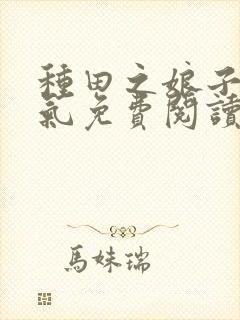 種田之娘子
氣免費閱讀
馬妹瑞